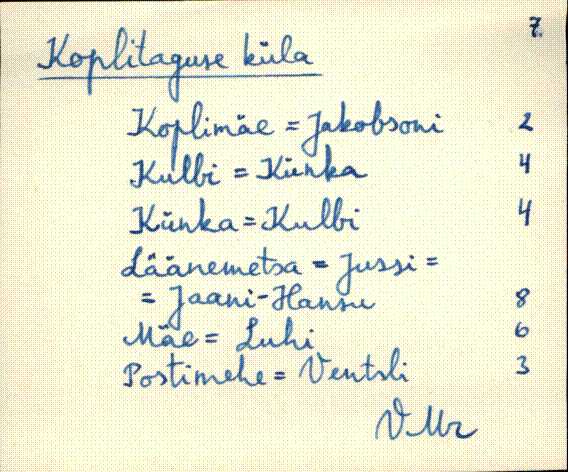 7.
Koplitaguse küla
Koplimäe = Jakobsoni 2
Kulbi = Künka 4
Künka = Kulbi 4
Läänemetsa = Jussi =
= Jaani-Hansu 8
Mäe = Luhi 6
Postimehe = Ventsli 3